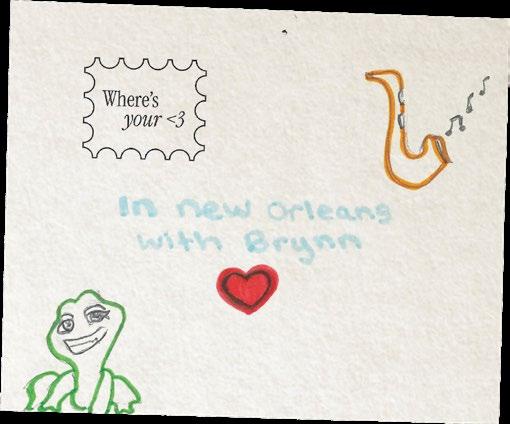 Where's
your <3
In new Orleans
with Brynn